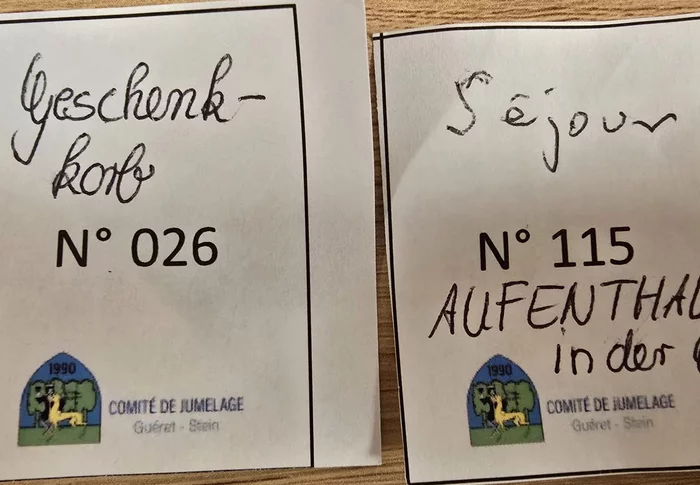 Geschenk-
korb
N° 026
1990
COMITÉ DE JUMELAGE
Guéret - Stein
Séjour
N° 115
AUFENTHAL
in der
1990
COMITÉ DE JUMELAGE
Guéret - Stein